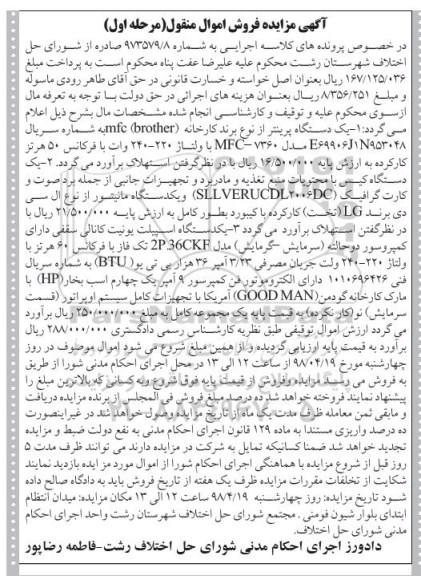 آگهی مزایده فروش اموال منقول(مرحله اول)
در خصوص پرونده های کلاسه اجرایی به شماره ۹۷۳۵۷۹/۸ صادره از شورای حل
اختلاف شهرستان رشت محکوم علیه علیرضا عفت پناه محکوم است به پرداخت مبلغ
۱۶۷/۱۲۵/۰۳۶ ریال بعنوان اصل خواسته و خسارت قانونی در حق آقای طاهر رودی ماسوله
و مبلغ ۸/۳۵۶/۲۵۱ ریال بعنوان هزینه های اجرائی در حق دولت با توجه به تعرفه مال
ازسوی محکوم علیه و توقیف و کارشناسی انجام شده مشخصات مال بشرح ذیل اعلام
می گردد:۱-یک دستگاه پرینتر از نوع برند کارخانه mfc (brother) به شماره سریال
E۶۹۹۰۶J۱N۹۵۳۰۴۸ مدل MFC-۷۳۶۰ با ولتاژ ۲۲۰-۲۴۰ وات با فرکانس ۵۰ هرتز
کارکرده به ارزش پایه ۱۶/۵۰۰/۰۰۰ ریال با در نظرگرفتن استهلاک برآورد می گردد. ۲-یک
دستگاه کیس با محتویات منبع تغذیه و مادربرد و تجهیزات جانبی از جمله برد صوت و
کارت گرافیکی (SLLVERUCDL۲۰۰۶DC) ویکدستگاه مانیتور از نوع ال سی
دی برند LG (تخت) کارکرده با کیبورد بطور کامل به ارزش پایه ۲۱/۵۰۰/۰۰۰ ریال با
در نظرگفتن استهلاک برآورد می گردد ۳-یکدستگاه اسپیلت یونیت کانالی سقفی دارای
کمپروسور دوحالته (سرمایش -گرمایش) مدل 2P36CKF تک فاز با فرکانس ۶۰ هرتز با
ولتاژ ۲۲۰-۲۴۰ ولت جریان مصرفی ۳/۲۳ آمپر ۳۶ هزار بی تی یو ( BTU) به شماره سریال
فنی ۱۰۱۰۶۹۶۴۲۶ دارای الکتروموتور فن کمپرسور ۹ آمپر یک چهارم اسب بخار(HP) با
مارک کارخانه گودمن(GOOD MAN) آمریکا با تجهیزات کامل سیستم اوپراتور (قسمت
سرمایش) نو(کار نکرده) به قیمت پایه یک مجموعه کامل به مبلغ ۲۵۰/۰۰۰/۰۰۰ ریال برآورد
می گردد ارزش اموال توقیفی طبق نظریه کارشناس رسمی دادگستری ۲۸۸/۰۰۰/۰۰۰ ریال
برآورد به قیمت پایه ارزیابی گردیده و از همین مبلغ شروع می شود اموال موصوف در روز
چهارشنبه مورخ ۹۸/۰۴/۱۹ از ساعت ۱۲ الی ۱۳ در محل اجرای احکام مدنی شورا از طریق
به فروش می رسد مزایده وفروش از قیمت پایه فوق شروع وبه کسانی که بالاترین مبلغ را
پیشنهاد نمایند فروخته خواهد شد ده درصد مبلغ فروش فی المجلس از برنده مزایده دریافت
و مابقی ثمن معامله ظرف مدت یک ماه از تاریخ مزایده وصول خواهد شد در غیراینصورت
ده درصد واریزی مستندا به ماده ۱۲۹ قانون اجرای احکام مدنی به نفع دولت ضبط و مزایده
تجدید خواهد شد ضمنا کسانیکه تمایل به شرکت در مزایده دارند می توانند ظرف مدت ۵
روز قبل از شروع مزایده با هماهنگی اجرای احکام شورا از اموال مورد مزایده بازدید نمایند
شکایت از تخلفات مقررات مزایده ظرف یک هفته از تاریخ فروش باید به دادگاه صالح داده
شود تاریخ مزایده: روز چهارشنبه ۹۸/۴/۱۹ ساعت ۱۲ الی ۱۳ مکان مزایده: میدان انتظام
ابتدای بلوار شیون فومنی ، مجتمع شورای حل اختلاف شهرستان رشت واحد اجرای احکام
مدنی شورای حل اختلاف.
دادورز اجرای احکام مدنی شورای حل اختلاف رشت-فاطمه رضاپور